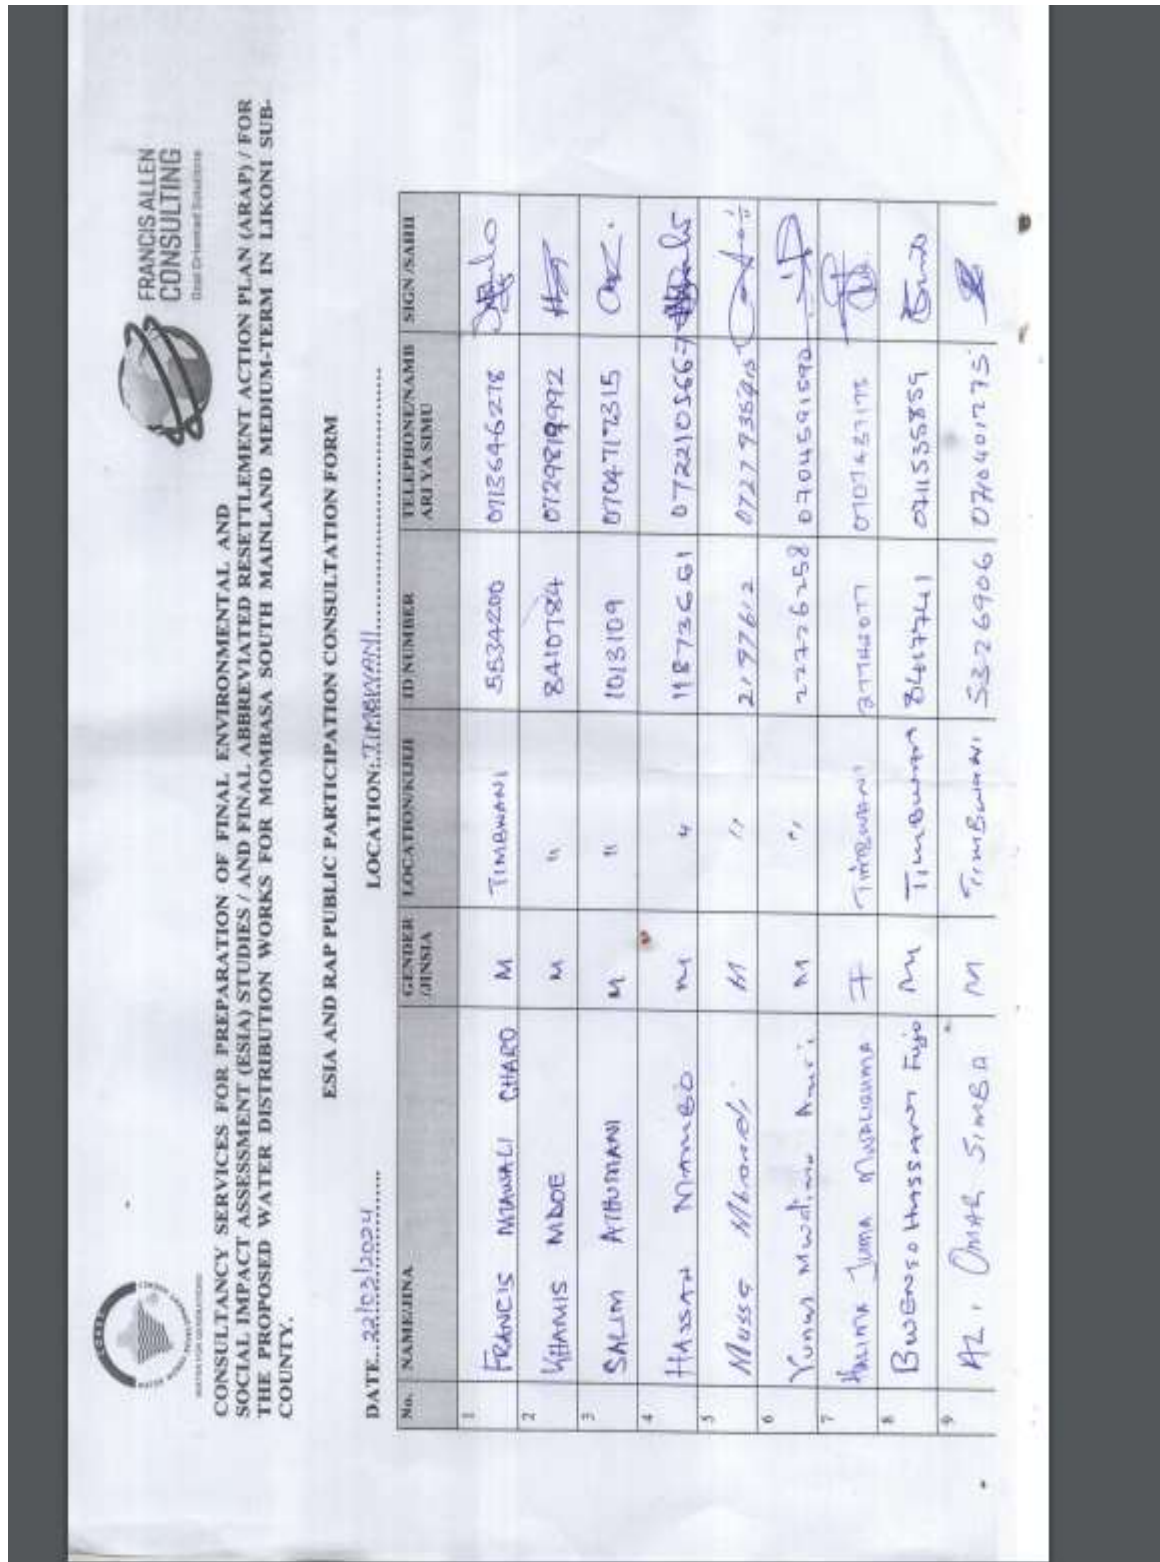 FRANCIS ALLEN
CONSULTING
Goal Oriented Solutions
CONSULTANCY SERVICES FOR PREPARATION OF FINAL ENVIRONMENTAL AND
SOCIAL IMPACT ASSESSMENT (ESIA) STUDIES / AND FINAL ABBREVIATED RESETTLEMENT ACTION PLAN (ARAP) / FOR
THE PROPOSED WATER DISTRIBUTION WORKS FOR MOMBASA SOUTH MAINLAND MEDIUM-TERM IN LIKONI SUB-
COUNTY.
ESIA AND RAP PUBLIC PARTICIPATION CONSULTATION FORM
DATE..22/03/2024 LOCATION:.TIMBWANI
No. NAME/JINA GENDER /JINSIA LOCATION/KIJIJI ID NUMBER TELEPHONE/NAMB ARI YA SIMU SIGN /SAHII
1 FRANCIS CHARO M TIMBWANI 5534200 0713646278
2 KHAMIS MBOE M " 8410784
3 SALIM ATHUMANI M " 1013109 0704717315
4 HASSAN M " 11873661 0722105667
5 Mussa M " 21977612
6 Yunus M " 22726258 0704591590
7 HALIMA JUMA F TIMBWANI
8 HASSANI M TIMBWANI 0711535859
9 ALI OMAR SIMBA M TIMBWANI 5326906